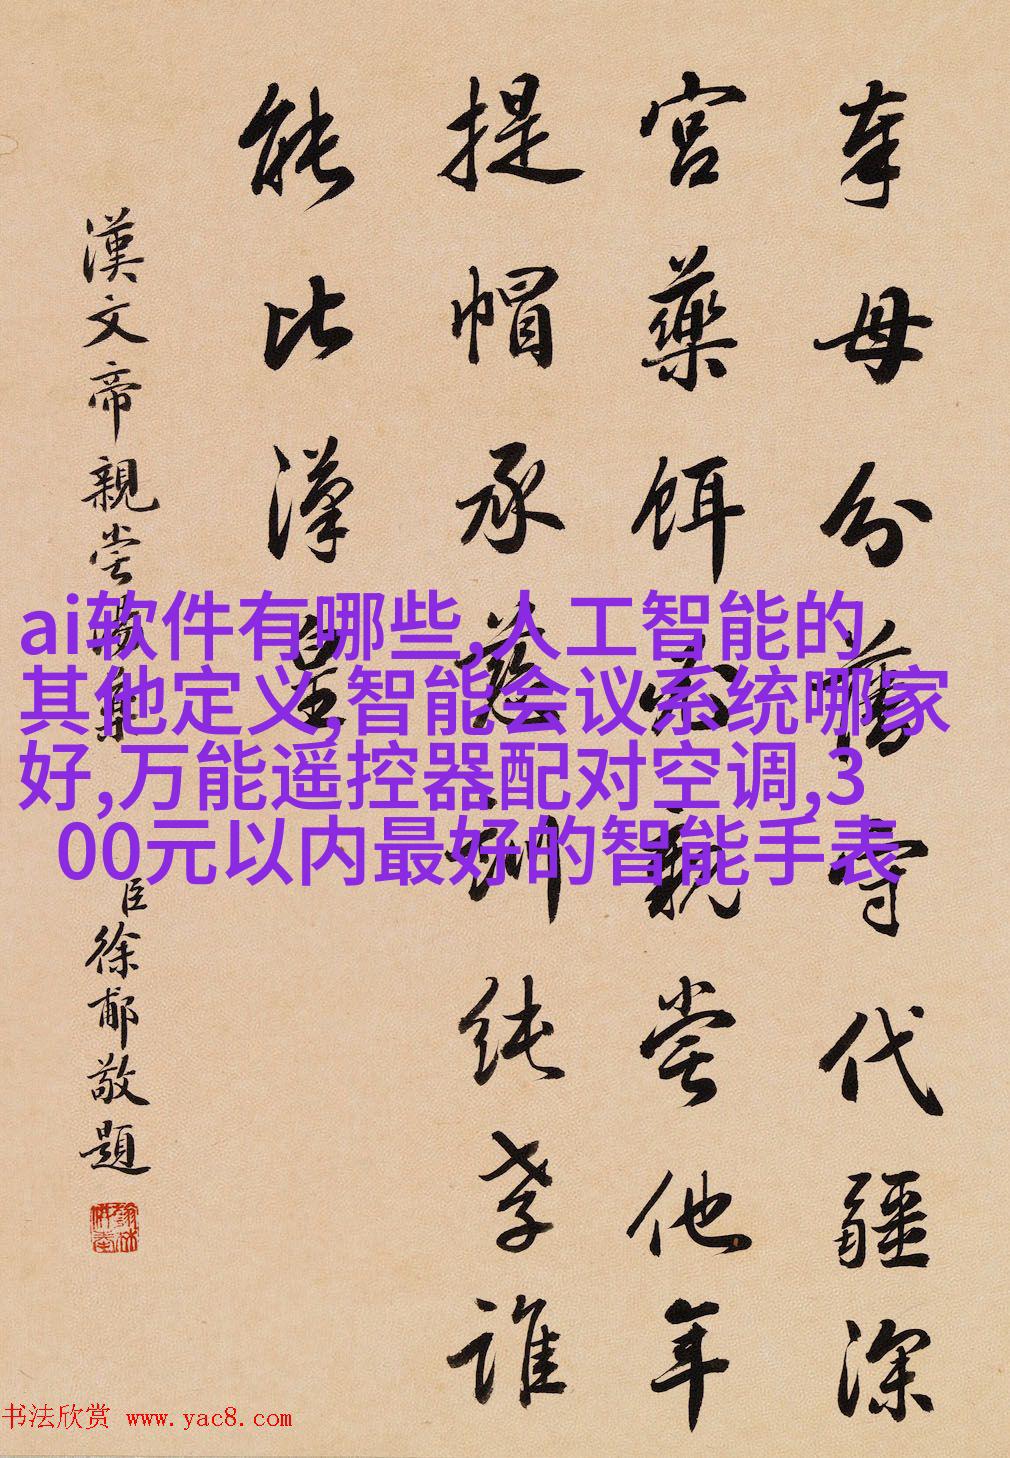 奉母分藩守代疆深
宮藥餌親嘗他年
提帽承慈訓純孝誰
能比漢皇
漢文帝親嘗
臣徐郙敬題
ai软件有哪些,人工智能的
其他定义,智能会议系统哪家
好,万能遥控器配对空调,3
00元以内最好的智能手表
书法欣赏 www.yac8.com